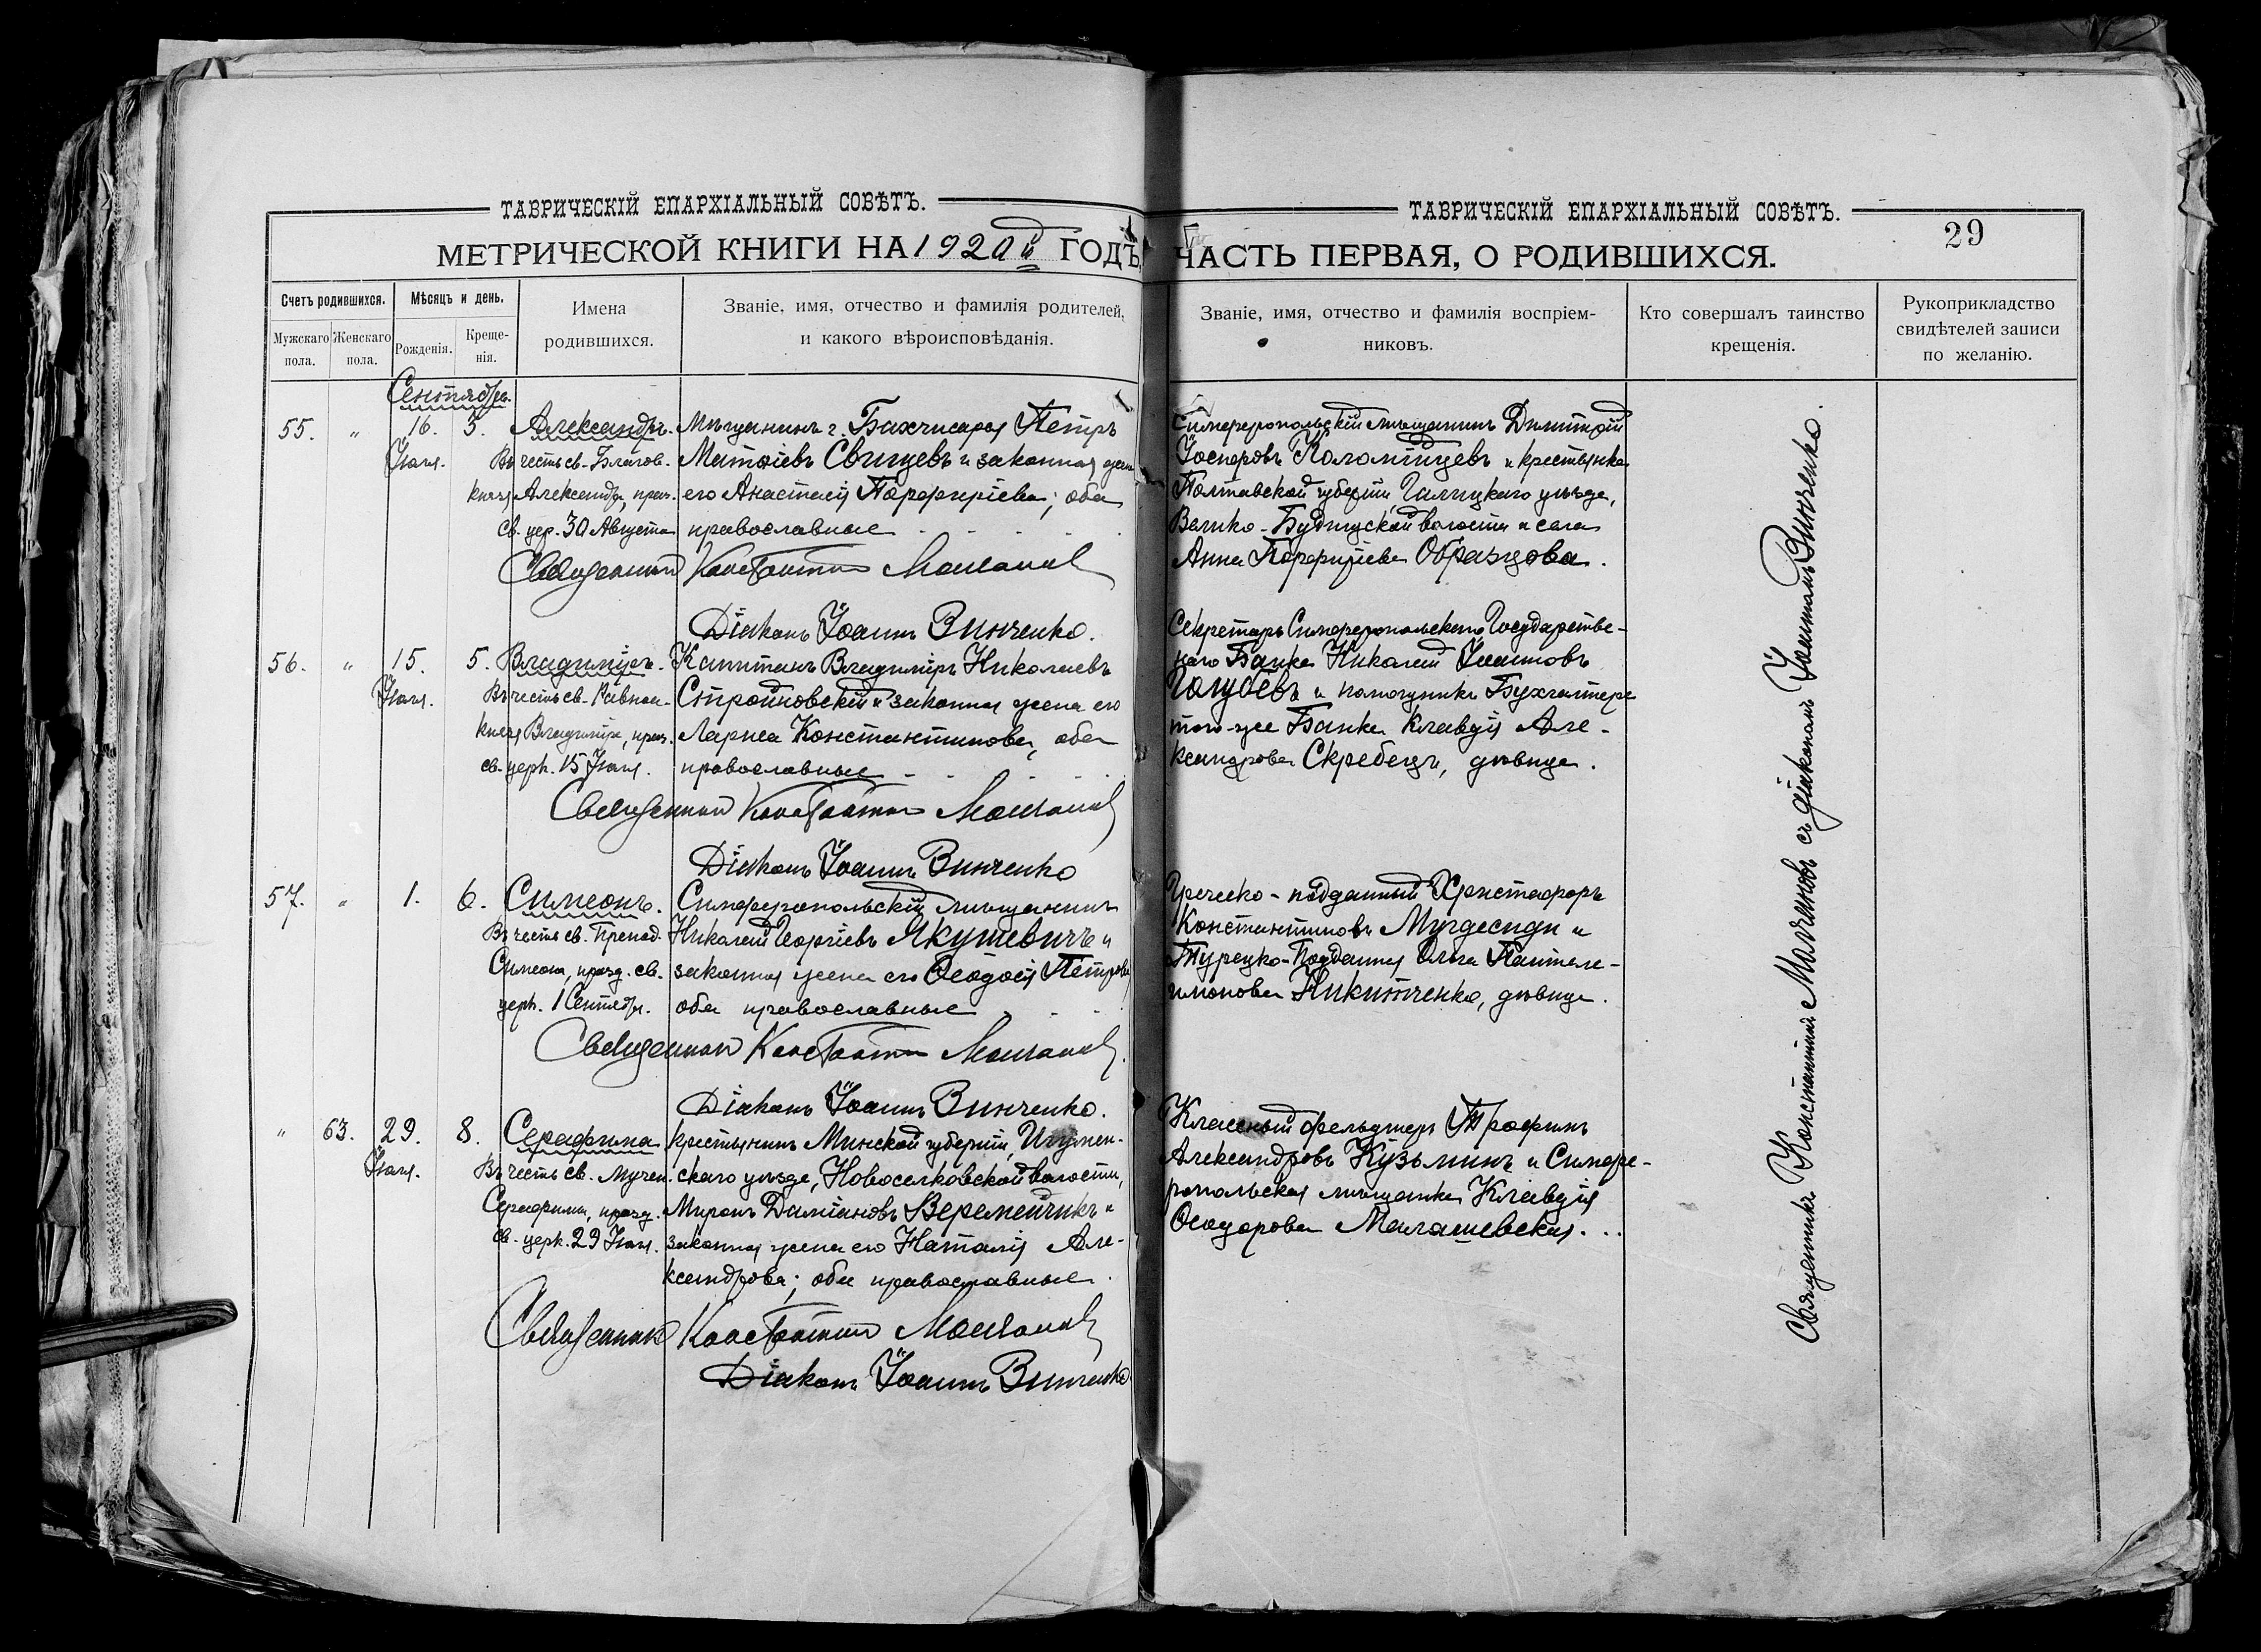 ТАВРИЧЕСКІЙ ЕПАРХІАЛЬНЫЙ СОВѢТЪ.
МЕТРИЧЕСКОЙ КНИГИ НА 1920й ГОДЪ,
Счетъ родившихся.
Мужскаго пола.
Женскаго пола.
Мѣсяцъ и день.
Рожденія.
Креще-
нія.
Имена
родившихся.
Званіе, имя, отчество и фамилія родителей,
и какого вѣроисповѣданія.
Сентябрь.
55. " 16. 5. Александръ. Мѣщанинъ г. Бахчисарая Петръ
Іюля. Въ честь св. Благов. Матѳіевъ Свищевъ и законная жена
князя Александра, праз. его Анастасія Порфиріева; оба
св. цер. 30 Августа православные
Священникъ Константинъ Молчановъ
Діаконъ Іоаннъ Винченко.
56. " 15. 5. Владиміръ. Капитанъ Владиміръ Николаевъ
Іюля. Въ честь св. Равноа. Стройновскій и законная жена его
князя Владиміра, праз. Лариса Константинова, оба
св. церк. 15 Іюля. православные
Священникъ Константинъ Молчановъ
Діаконъ Іоаннъ Винченко
57. " 1. 6. Симеонъ. Симферопольскій мѣщанинъ
Въ честь св. Препод. Николай Георгіевъ Якушевичъ и
Симеона, празд. св. законная жена его Ѳеодосія Петрова
церк. 1 Сентября. оба православные
Священникъ Константинъ Молчановъ.
Діаконъ Іоаннъ Винченко.
" 63. 29. 8. Серафима Крестьянинъ Минской губерніи, Игумен-
Іюля. Въ честь св. Мучен. скаго уѣзда, Новоселковской волости,
Серафимы, празд. Миронъ Даміановъ Веремейчикъ и
св. церк. 29 Іюля. законная жена его Наталія Але-
ксандрова; оба православные.
Священникъ Константинъ Молчановъ
Діаконъ Іоаннъ Винченко
ТАВРИЧЕСКІЙ ЕПАРХІАЛЬНЫЙ СОВѢТЪ.
29
ЧАСТЬ ПЕРВАЯ, О РОДИВШИХСЯ.
Званіе, имя, отчество и фамилія воспріем-
никовъ.
Кто совершалъ таинство
крещенія.
Рукоприкладство
свидѣтелей записи
по желанію.
Симферопольскій мѣщанинъ Димитрій
Коломійцевъ и крестьянка
Полтавской губерніи, уѣзда,
Велико-Будищской волости и села
Анна Порфиріева Образцова.
Секретарь Симферопольскаго Государстве-
наго Банка Николай Іоанновъ
Голубевъ и помощница Бухгалтера
того-же Банка Клавдія Але-
ксандрова Скребецъ, дѣвица.
Греческо-подданный Христофоръ
Константиновъ Мурдесиди и
Турецко-Подданная Ольга Пантеле-
имонова Никитченко, дѣвица.
Классный фельдшеръ Трофимъ
Александровъ Кузьминъ и Симфе-
ропольская мѣщанка Клавдія
Ѳеодорова Малашевская.
Священникъ Константинъ Молчановъ съ діакономъ Іоанномъ Винченко.